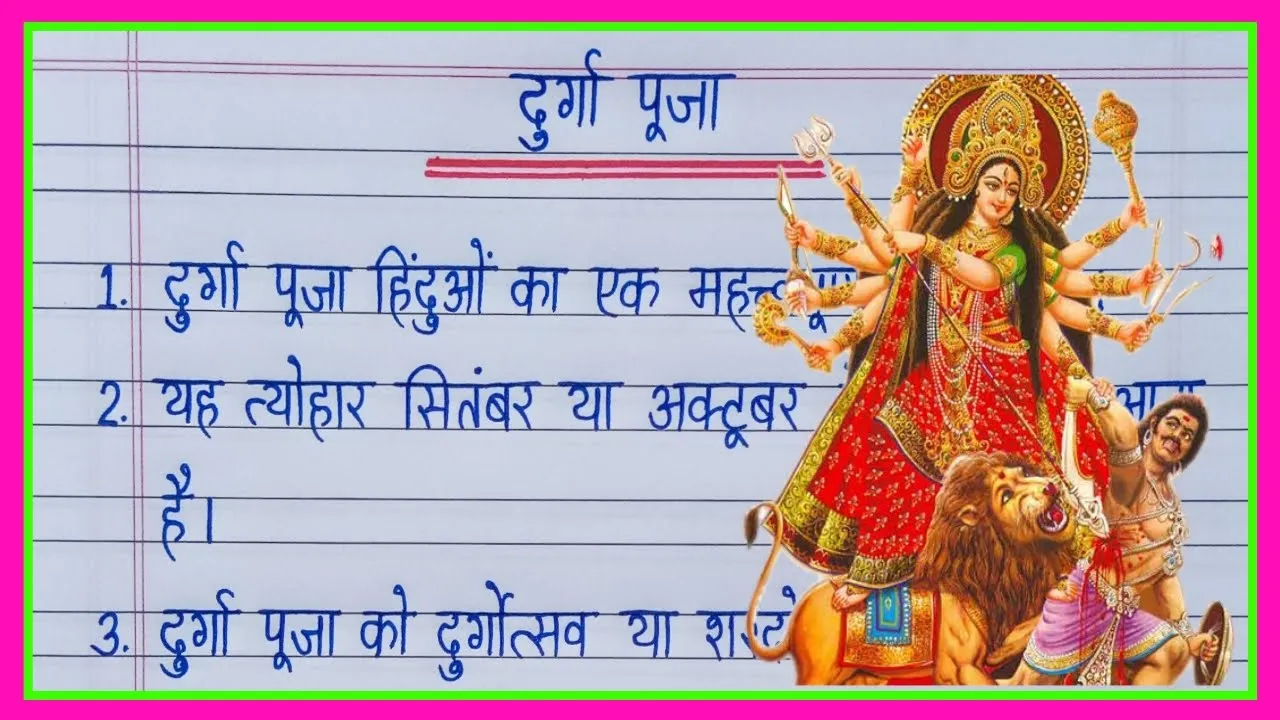 दुर्गा पूजा
1. दुर्गा पूजा हिंदुओं का एक
2. यह त्योहार सितंबर या अक्टूबर
है।
3. दुर्गा पूजा को दुर्गोत्सव या